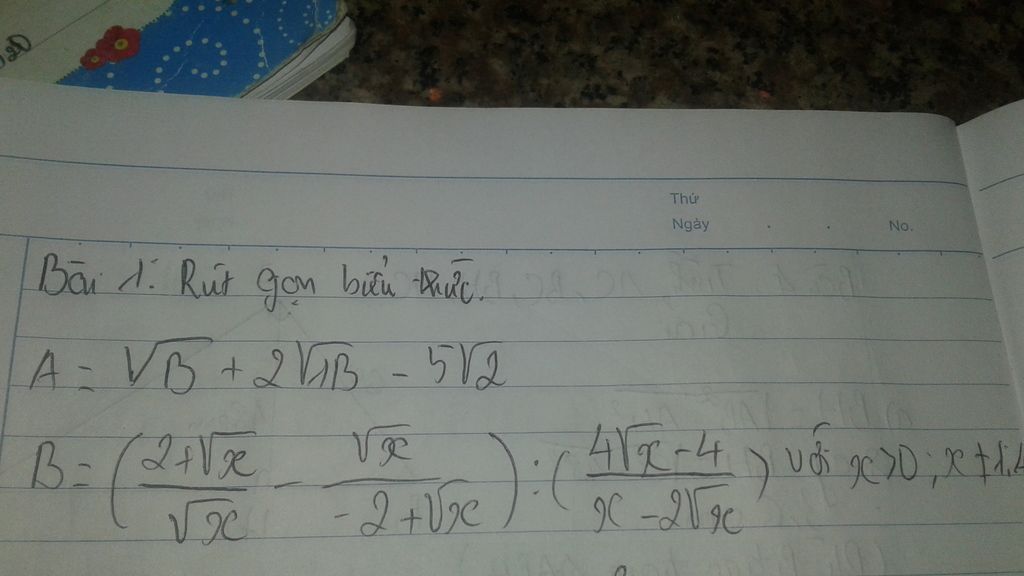 Thứ
Ngày . . No.
Bài 1: Rút gọn biểu thức.
A = √8 + 2√18 - 5√2
B = (2+√x/√x - √x/-2+√x) : (4√x-4/x-2√x) với x>0; x≠1,4